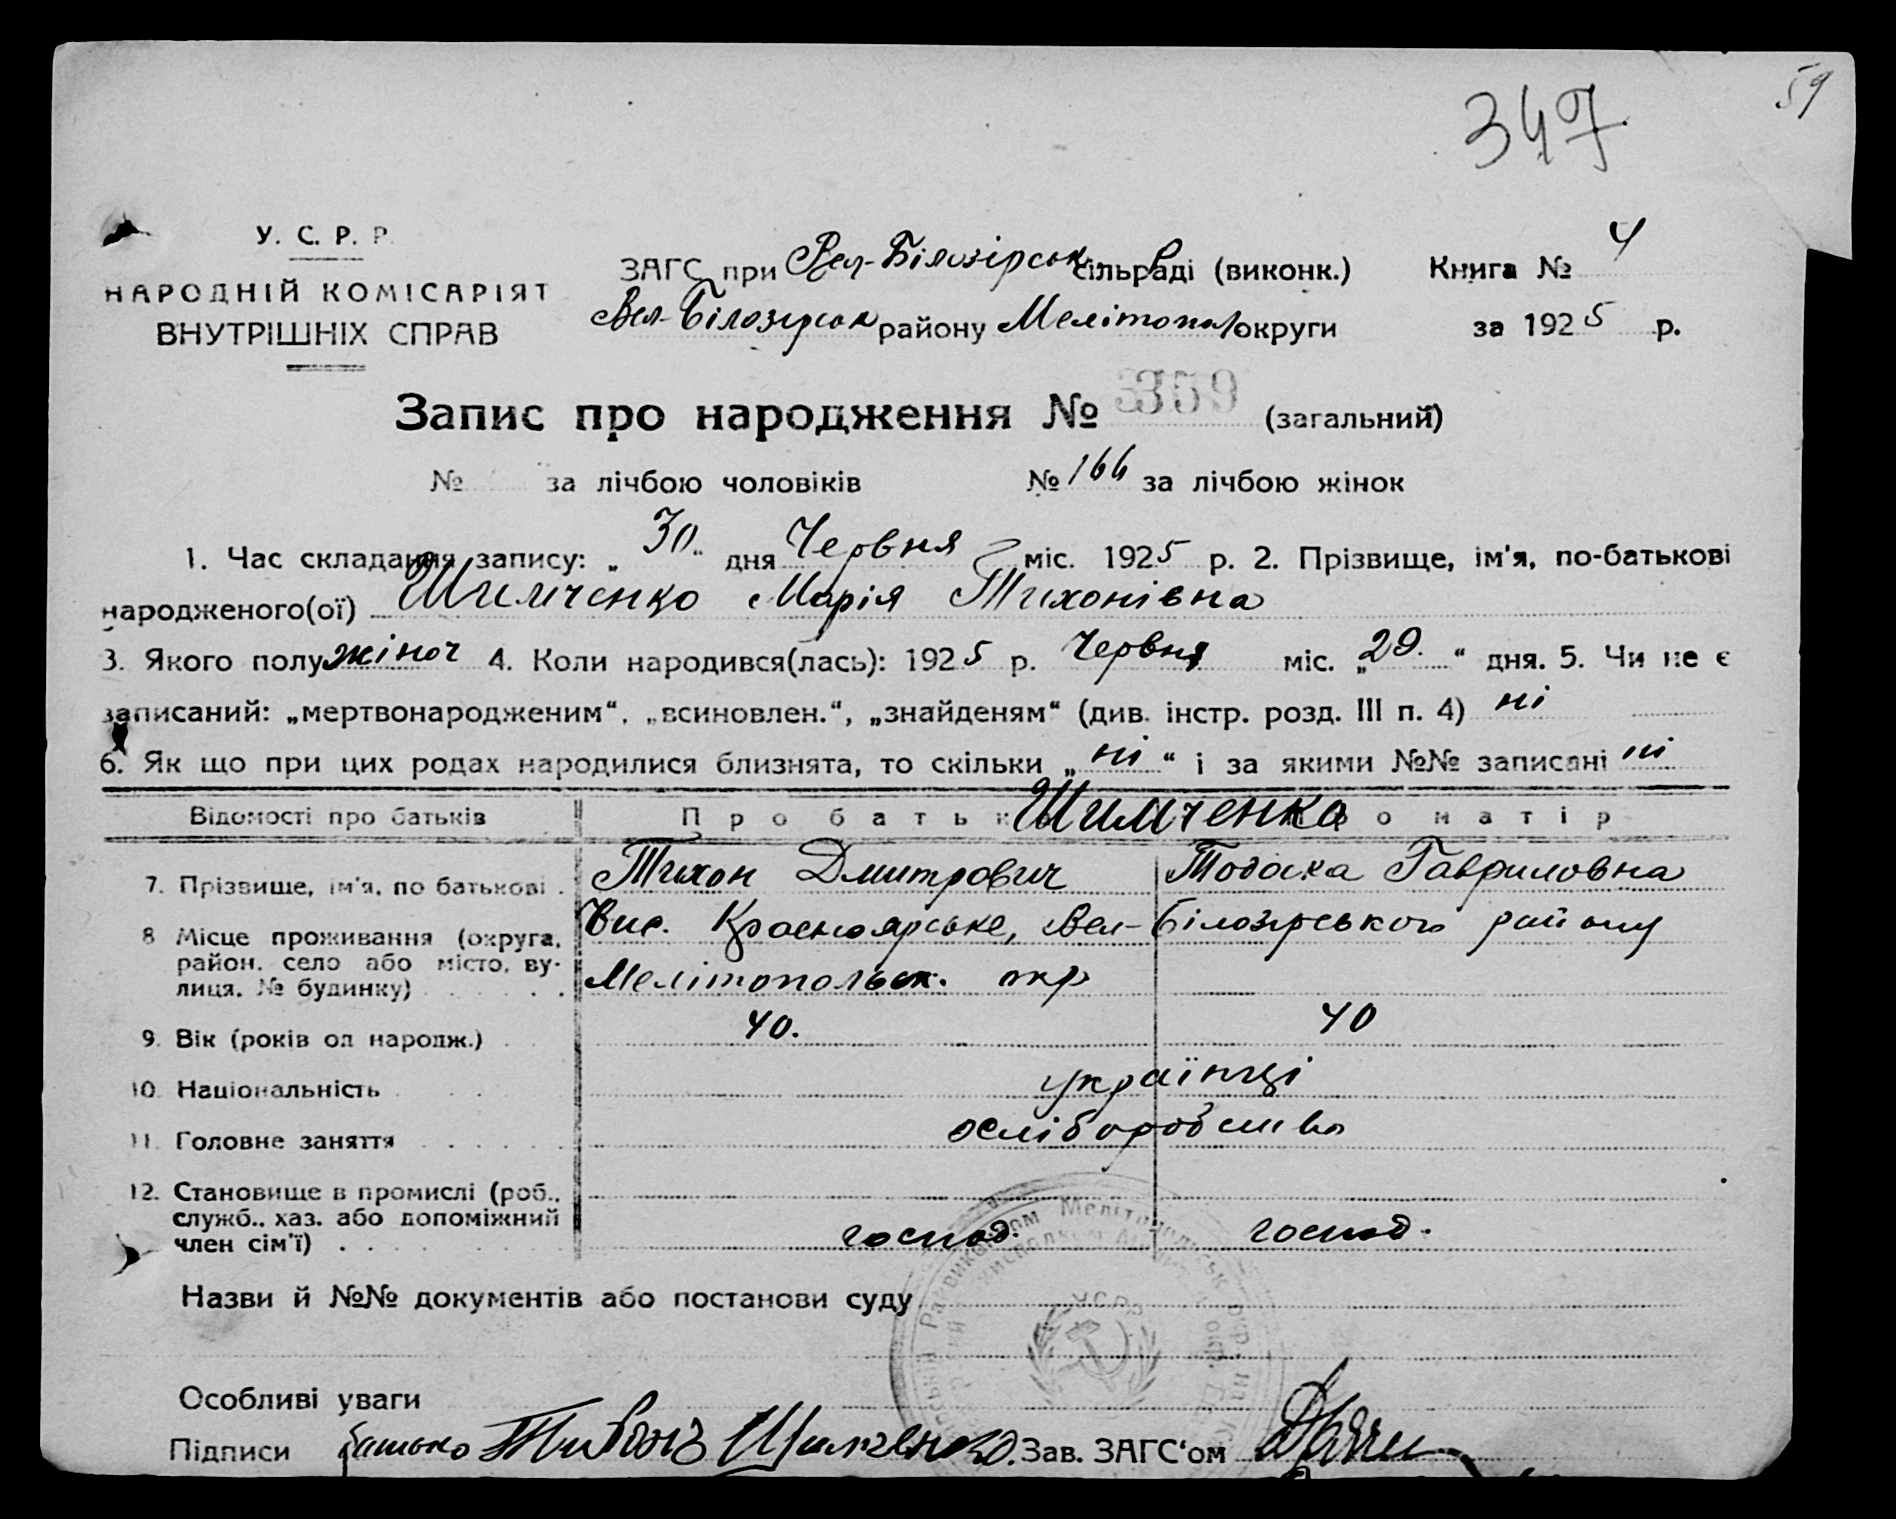 59
347
У. С. Р. Р.
НАРОДНІЙ КОМІСАРІЯТ
ВНУТРІШНІХ СПРАВ
ЗАГС при Вел-Білозірськ. сільраді (виконк.) Книга № 4
Вел-Білозірськ району Мелітопол округи за 1925 р.
Запис про народження № 359 (загальний)
№ за лічбою чоловіків № 166 за лічбою жінок
1. Час складання запису: „30“ дня Червня міс. 1925 р. 2. Прізвище, ім'я, по-батькові
народженого(ої) Шимченко Марія Тихонівна
3. Якого полу жіноч 4. Коли народився(лась): 1925 р. Червня міс. „29“ дня. 5. Чи не є
записаний: „мертвонародженим“, „всиновлен.“, „знайденям“ (див. інстр. розд. III п. 4) ні
6. Як що при цих родах народилися близнята, то скільки „ні“ і за якими №№ записані ні
Відомості про батьків Про батька Шимченко Про матір
7. Прізвище, ім'я, по батькові . Тихон Дмитрович Тодоска Гавриловна
8 Місце проживання (округа, район, село або місто, вулиця, № будинку) Вис. Красноярське, Вел-Білозірського району
Мелітопольськ. окр
9. Вік (років од народж.) 40. 40
10. Національність українці
11. Головне заняття хліборобство
12. Становище в промислі (роб., служб., хаз. або допоміжний член сім'ї) господ. господ.
Назви й №№ документів або постанови суду
УСРР
Особливі уваги
Підписи батько Шимченко Зав. ЗАГС'ом